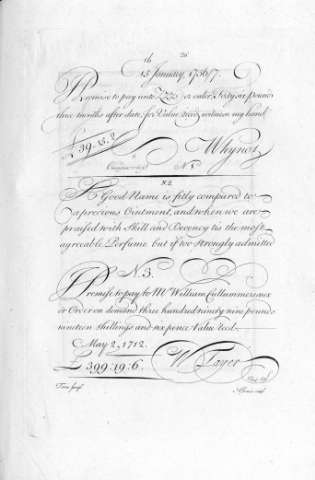 15 January, 1736/7.
Promise to pay unto or order, Sixty six Pounds
three months after date, for Value recd. witness my hand
£ 39 = 15 = 2 Whynot
N.
N 2
A Good Name is fitly compared to
a precious Ointment, and when we are
praised with Skill and Decency tis the most
agreeable Perfume but if too strongly admitted
N 3.
Promise to pay to Mr. William
or Order on demand three hundred ninty nine pounds
nineteen shillings and six pence Value Recd.
May 2, 1712.
£ 399 : 19 : 6 W Tayer